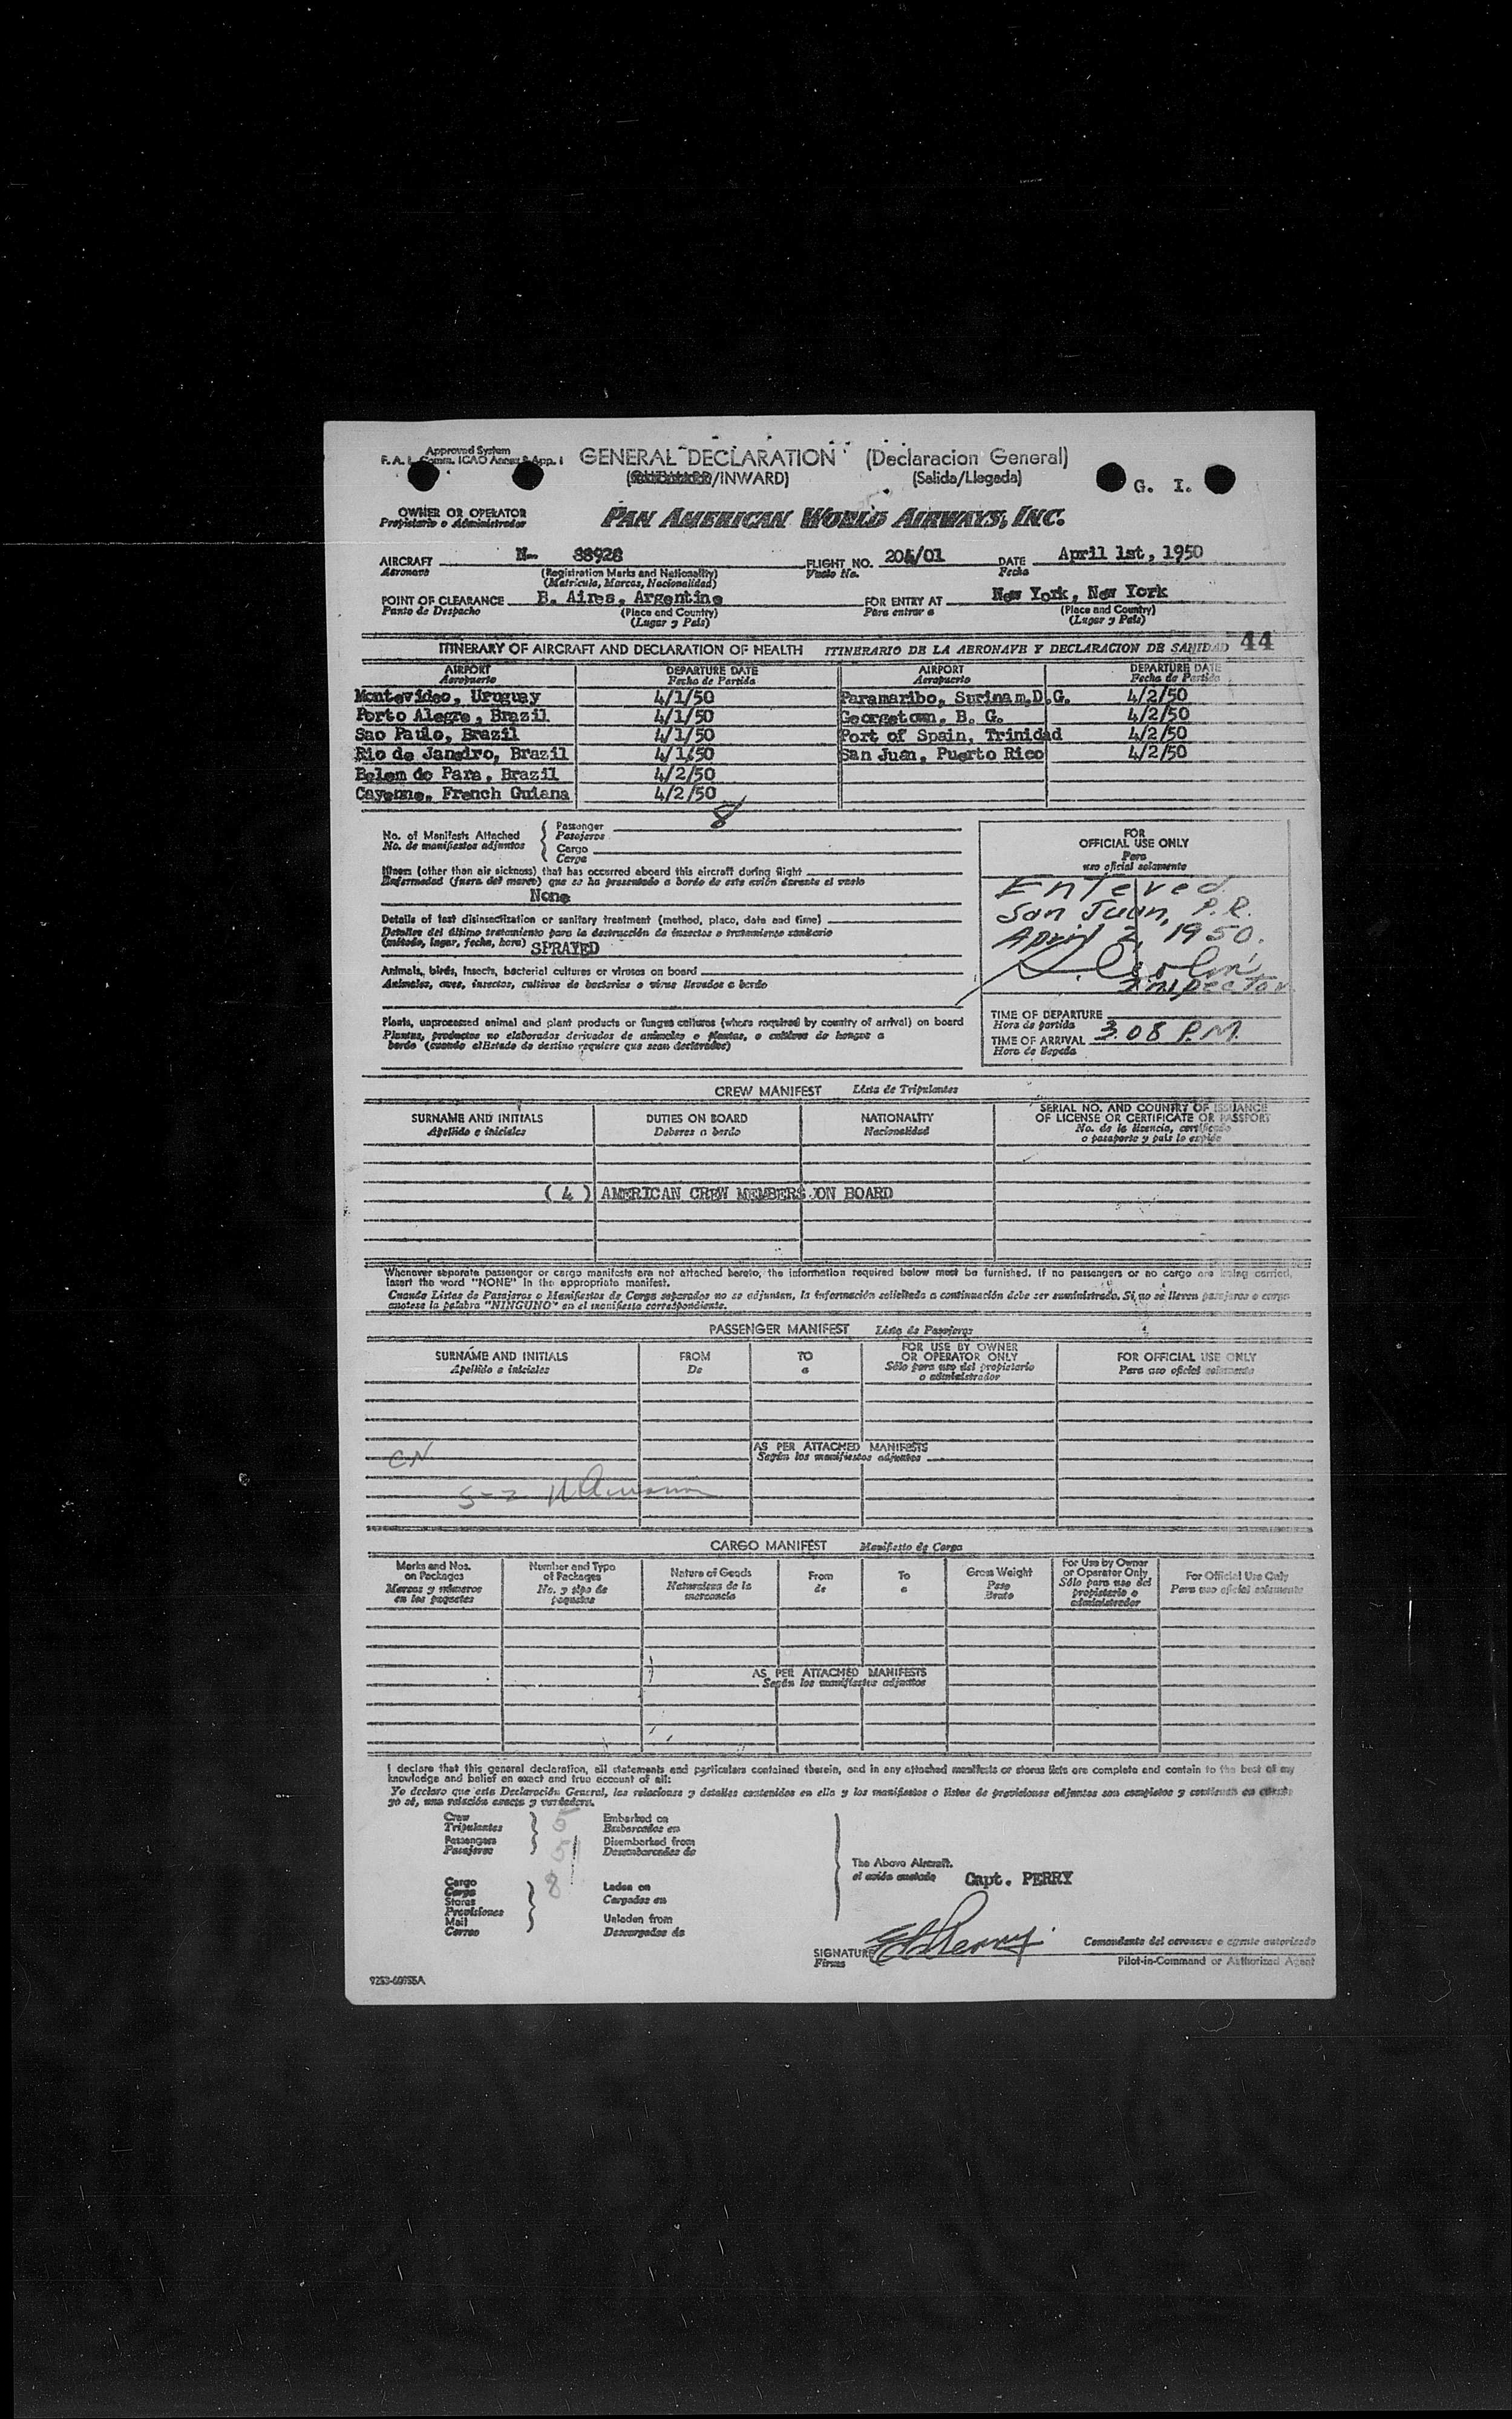 Approved System
F. A. L. Comm. ICAO Annex 9 App. 1
GENERAL DECLARATION (Declaracion General)
(/INWARD) (Salida/Llegada)
G. I.
OWNER OR OPERATOR
Propietario o Administrador
PAN AMERICAN WORLD AIRWAYS, INC.
AIRCRAFT N- 88928 FLIGHT NO. 204/01 DATE April 1st, 1950
Aeronave (Registration Marks and Nationality) Vuelo No. Fecha
(Matricula, Marcas, Nacionalidad)
POINT OF CLEARANCE B. Aires, Argentine FOR ENTRY AT New York, New York
Punto de Despacho (Place and Country) Para entrar a (Place and Country)
(Lugar y Pais) (Lugar y Pais)
ITINERARY OF AIRCRAFT AND DECLARATION OF HEALTH ITINERARIO DE LA AERONAVE Y DECLARACION DE SANIDAD 44
AIRPORT DEPARTURE DATE AIRPORT DEPARTURE DATE
Aeropuerto Fecha de Partida Aeropuerto Fecha de Partida
Montevideo, Uruguay 4/1/50 Paramaribo, Surinam,D.G. 4/2/50
Porto Alegre, Brazil 4/1/50 Georgetown, B. G. 4/2/50
Sao Paulo, Brazil 4/1/50 Port of Spain, Trinidad 4/2/50
Rio de Janeiro, Brazil 4/1/50 San Juan, Puerto Rico 4/2/50
Belem do Para, Brazil 4/2/50
Cayenne, French Guiana 4/2/50
No. of Manifests Attached Passenger 8
No. de manifiestos adjuntos Pasajeros
Cargo
Carga
Illness (other than air sickness) that has occurred aboard this aircraft during flight
Enfermedad (fuera del mareo) que se ha presentado a bordo de este avión durante el vuelo
None
Details of last disinsectization or sanitary treatment (method, place, date and time)
Detalles del último tratamiento para la destrucción de insectos o tratamiento sanitario
(método, lugar, fecha, hora) SPRAYED
Animals, birds, insects, bacterial cultures or viruses on board
Animales, aves, insectos, cultivos de bacterias o virus llevados a bordo
Plants, unprocessed animal and plant products or fungus cultures (where required by country of arrival) on board
Plantas, productos no elaborados derivados de animales o plantas, o cultivos de hongos a
bordo (cuando el Estado de destino requiere que sean declarados)
FOR
OFFICIAL USE ONLY
Para
uso oficial solamente
Entered
San Juan, P.R.
April 2, 1950.
Inspector
TIME OF DEPARTURE
Hora de partida
TIME OF ARRIVAL 3:08 P.M.
Hora de llegada
CREW MANIFEST Lista de Tripulantes
SURNAME AND INITIALS DUTIES ON BOARD NATIONALITY SERIAL NO. AND COUNTRY OF ISSUANCE
OF LICENSE OR CERTIFICATE OR PASSPORT
Apellido e iniciales Deberes a bordo Nacionalidad No. de la licencia, certificado
o pasaporte y pais lo expide
( 4 ) AMERICAN CREW MEMBERS ON BOARD
Whenever separate passenger or cargo manifests are not attached hereto, the information required below must be furnished. If no passengers or no cargo are being carried,
insert the word "NONE" in the appropriate manifest.
Cuando Listas de Pasajeros o Manifiestos de Carga separados no se adjuntan, la información solicitada a continuación debe ser suministrada. Si no se lleven pasajeros o carga
anotese la palabra "NINGUNO" en el manifiesto correspondiente.
PASSENGER MANIFEST Lista de Pasajeros
SURNAME AND INITIALS FROM TO FOR USE BY OWNER
OR OPERATOR ONLY FOR OFFICIAL USE ONLY
Apellido e iniciales De a Sólo para uso del propietario
o administrador Para uso oficial solamente
AS PER ATTACHED MANIFESTS
Según los manifiestos adjuntos
CN
CARGO MANIFEST Manifiesto de Carga
Marks and Nos.
on Packages
Marcas y números
en los paquetes
Number and Type
of Packages
No. y tipo de
paquetes
Nature of Goods
Naturaleza de la
mercancia
From
de
To
a
Gross Weight
Peso
Bruto
For Use by Owner
or Operator Only
Sólo para uso del
propietario o
administrador
For Official Use Only
Para uso oficial solamente
AS PER ATTACHED MANIFESTS
Según los manifiestos adjuntos
I declare that this general declaration, all statements and particulars contained therein, and in any attached manifests or stores lists are complete and contain to the best of my
knowledge and belief an exact and true account of all:
Yo declaro que esta Declaración General, las relaciones y detalles contenidos en ella y los manifiestos o listas de provisiones adjuntos son completos y contienen en cuanto
yo sé, una relación exacta y verdadera.
Crew 5 Embarked on
Tripulantes Embarcados en
Passengers 51 Disembarked from
Pasajeros Desembarcados de
Cargo 8 Laden on
Carga Cargados en
Stores
Provisiones
Mail Unladen from
Correo Descargados de
The Above Aircraft.
el avión anotado Capt. PERRY
SIGNATURE
Firma
Comandante del aeronave o agente autorizado
Pilot-in-Command or Authorized Agent
9253-60955A